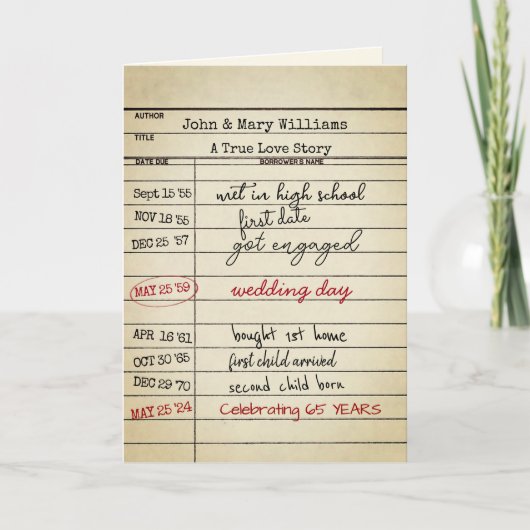 AUTHOR
John & Mary Williams
TITLE
A True Love Story
DATE DUE BORROWER'S NAME
Sept 15 '55 met in high school
NOV 18 '55 first date
DEC 25 '57 got engaged
MAY 25 '59 wedding day
APR 16 '61 bought 1st home
OCT 30 '65 first child arrived
DEC 29 70 second child born
MAY 25 '24 Celebrating 65 YEARS